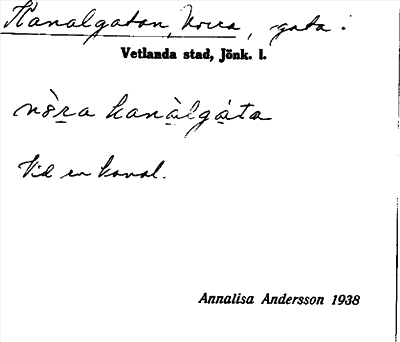 Kanalgatan, Norra, gata i
Vetlanda stad, Jönk. l.
nòra kanàlgáta
Vid en kanal.
Annalisa Andersson 1938